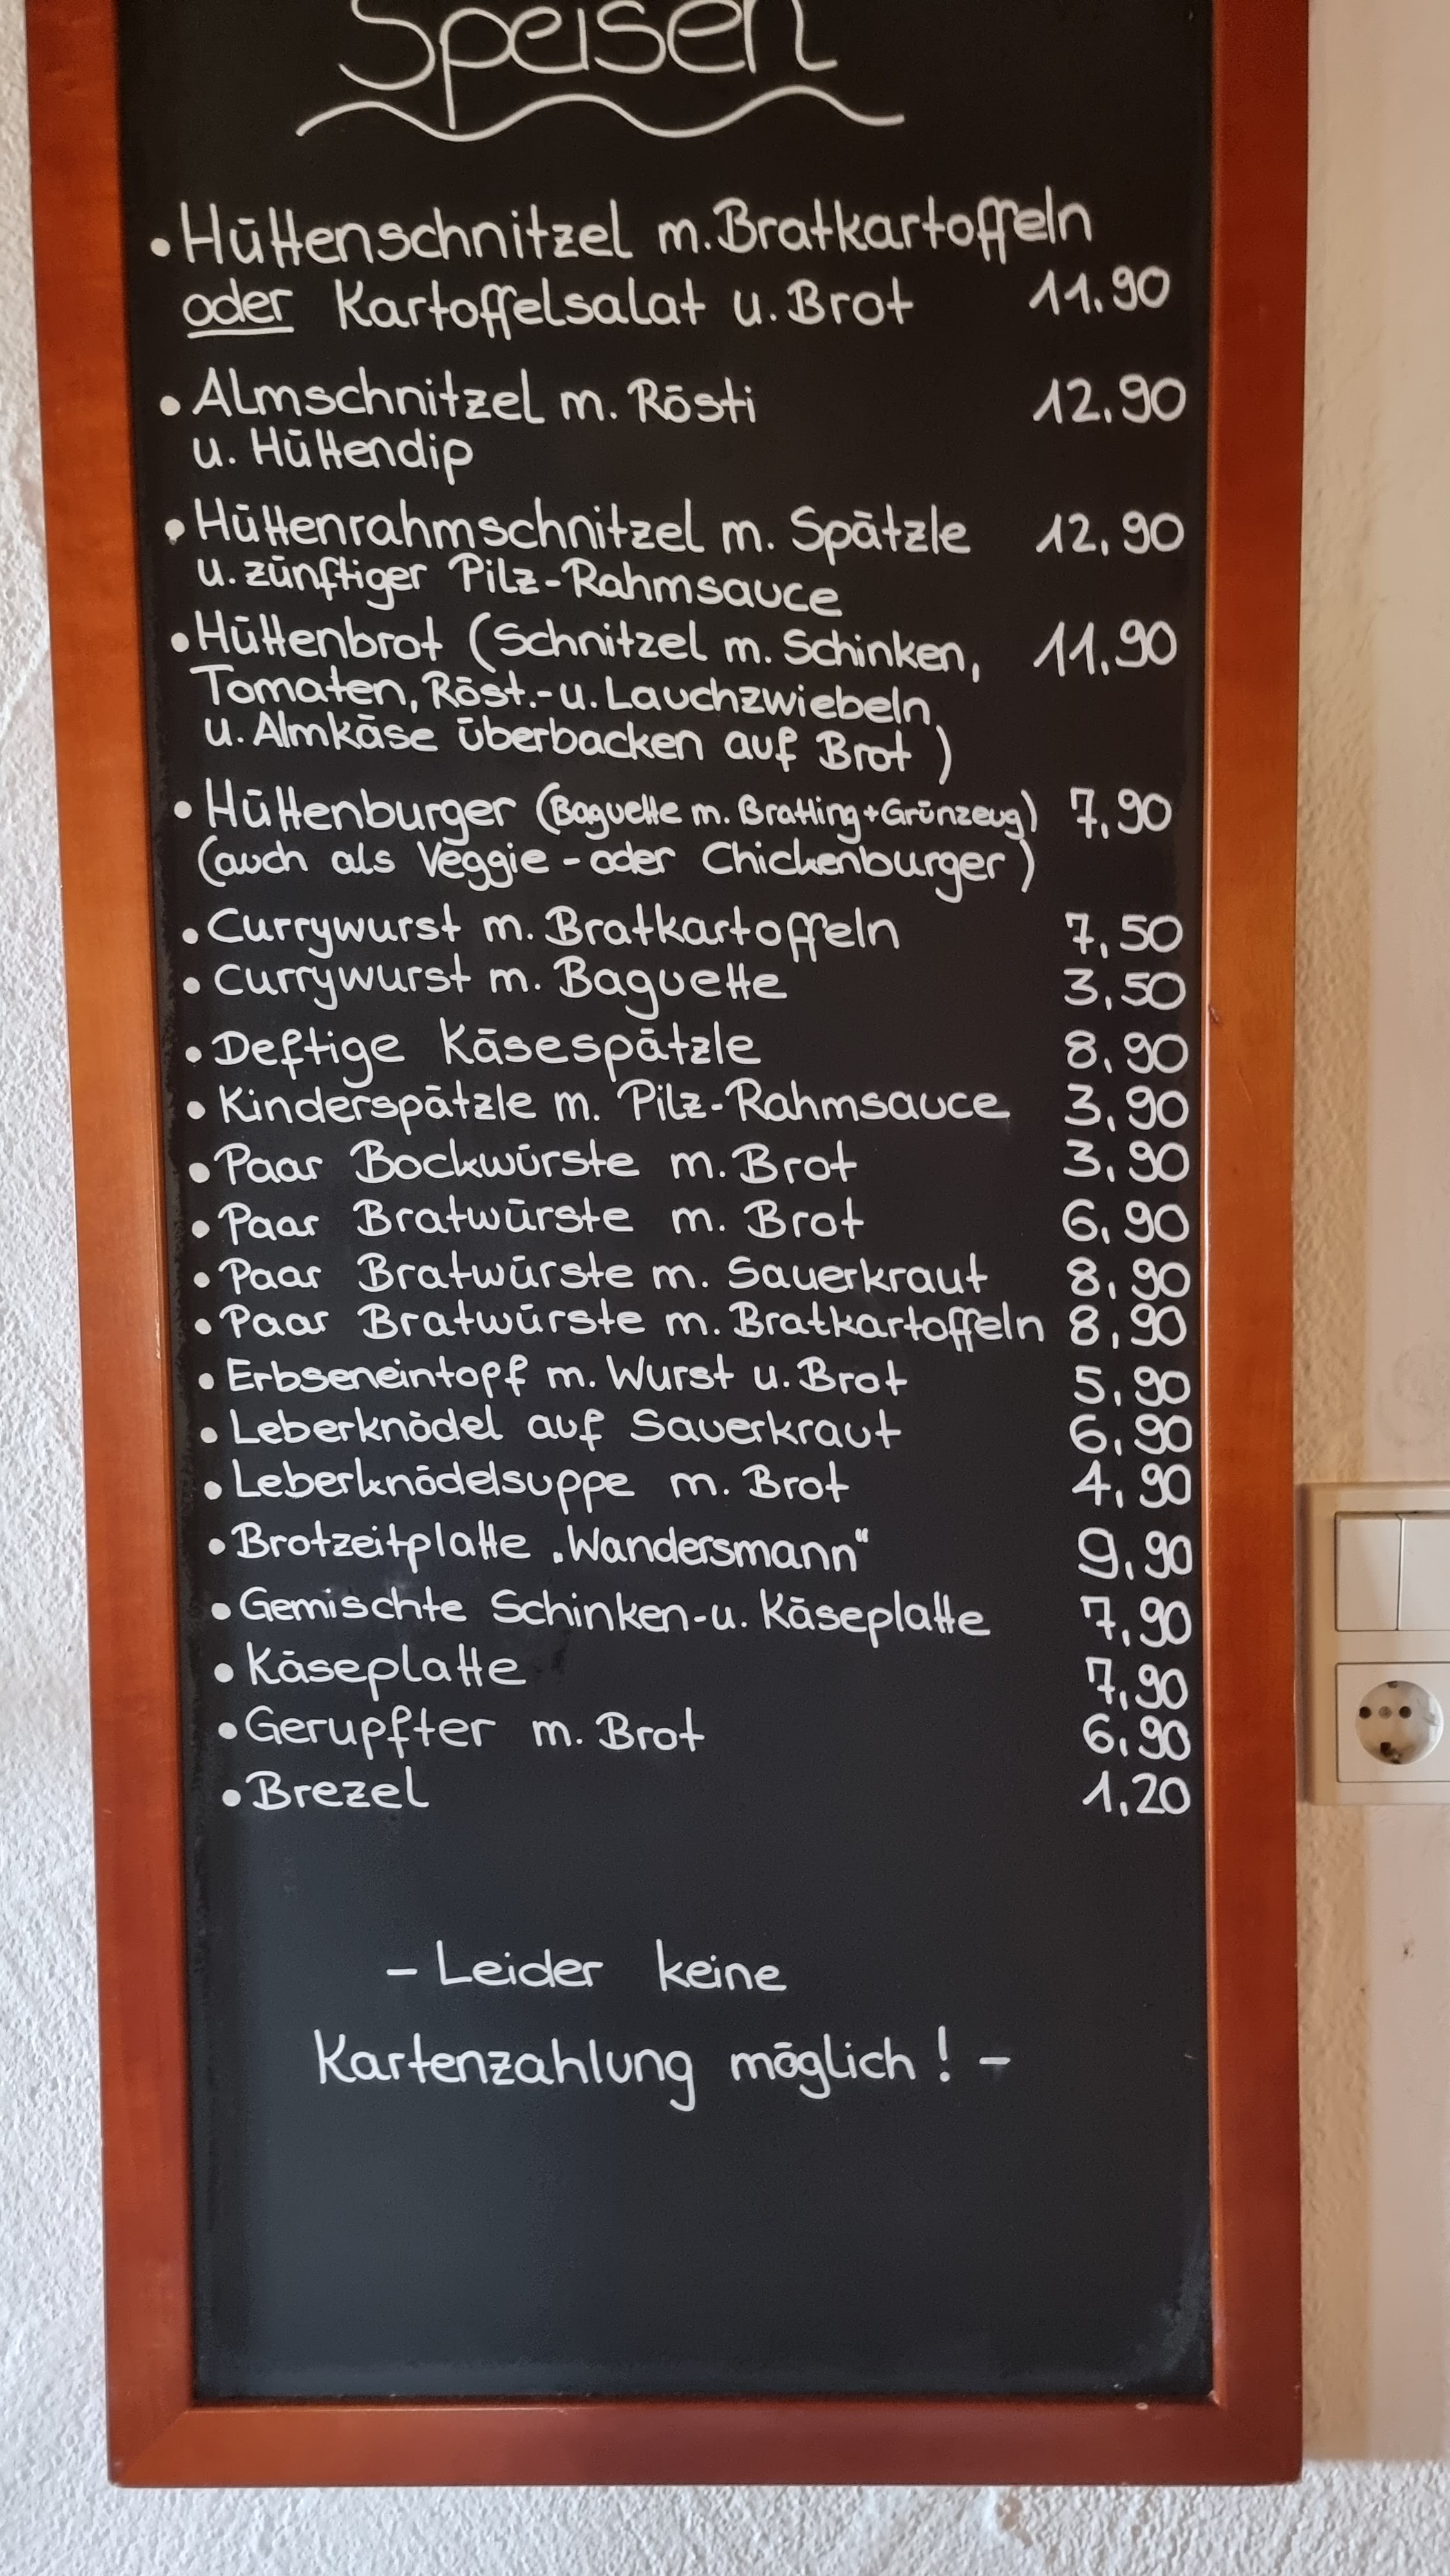 Speisen
• Hüttenschnitzel m. Bratkartoffeln
oder Kartoffelsalat u. Brot 11.90
• Almschnitzel m. Rösti 12.90
u. Hüttendip
• Hüttenrahmschnitzel m. Spätzle 12,90
u. zünftiger Pilz-Rahmsauce
• Hüttenbrot (Schnitzel m. Schinken, 11,90
Tomaten, Röst.- u. Lauchzwiebeln,
u. Almkäse überbacken auf Brot)
• Hüttenburger (Baguette m. Bratling + Grünzeug) 7,90
(auch als Veggie - oder Chickenburger)
• Currywurst m. Bratkartoffeln 7,50
• Currywurst m. Baguette 3,50
• Deftige Käsespätzle 8,90
• Kinderspätzle m. Pilz-Rahmsauce 3,90
• Paar Bockwürste m. Brot 3,90
• Paar Bratwürste m. Brot 6,90
• Paar Bratwürste m. Sauerkraut 8,90
• Paar Bratwürste m. Bratkartoffeln 8,90
• Erbseneintopf m. Wurst u. Brot 5,90
• Leberknödel auf Sauerkraut 6,90
• Leberknödelsuppe m. Brot 4,90
• Brotzeitplatte „Wandersmann“ 9,90
• Gemischte Schinken- u. Käseplatte 7,90
• Käseplatte 7,90
• Gerupfter m. Brot 6,90
• Brezel 1,20
- Leider keine
Kartenzahlung möglich! -